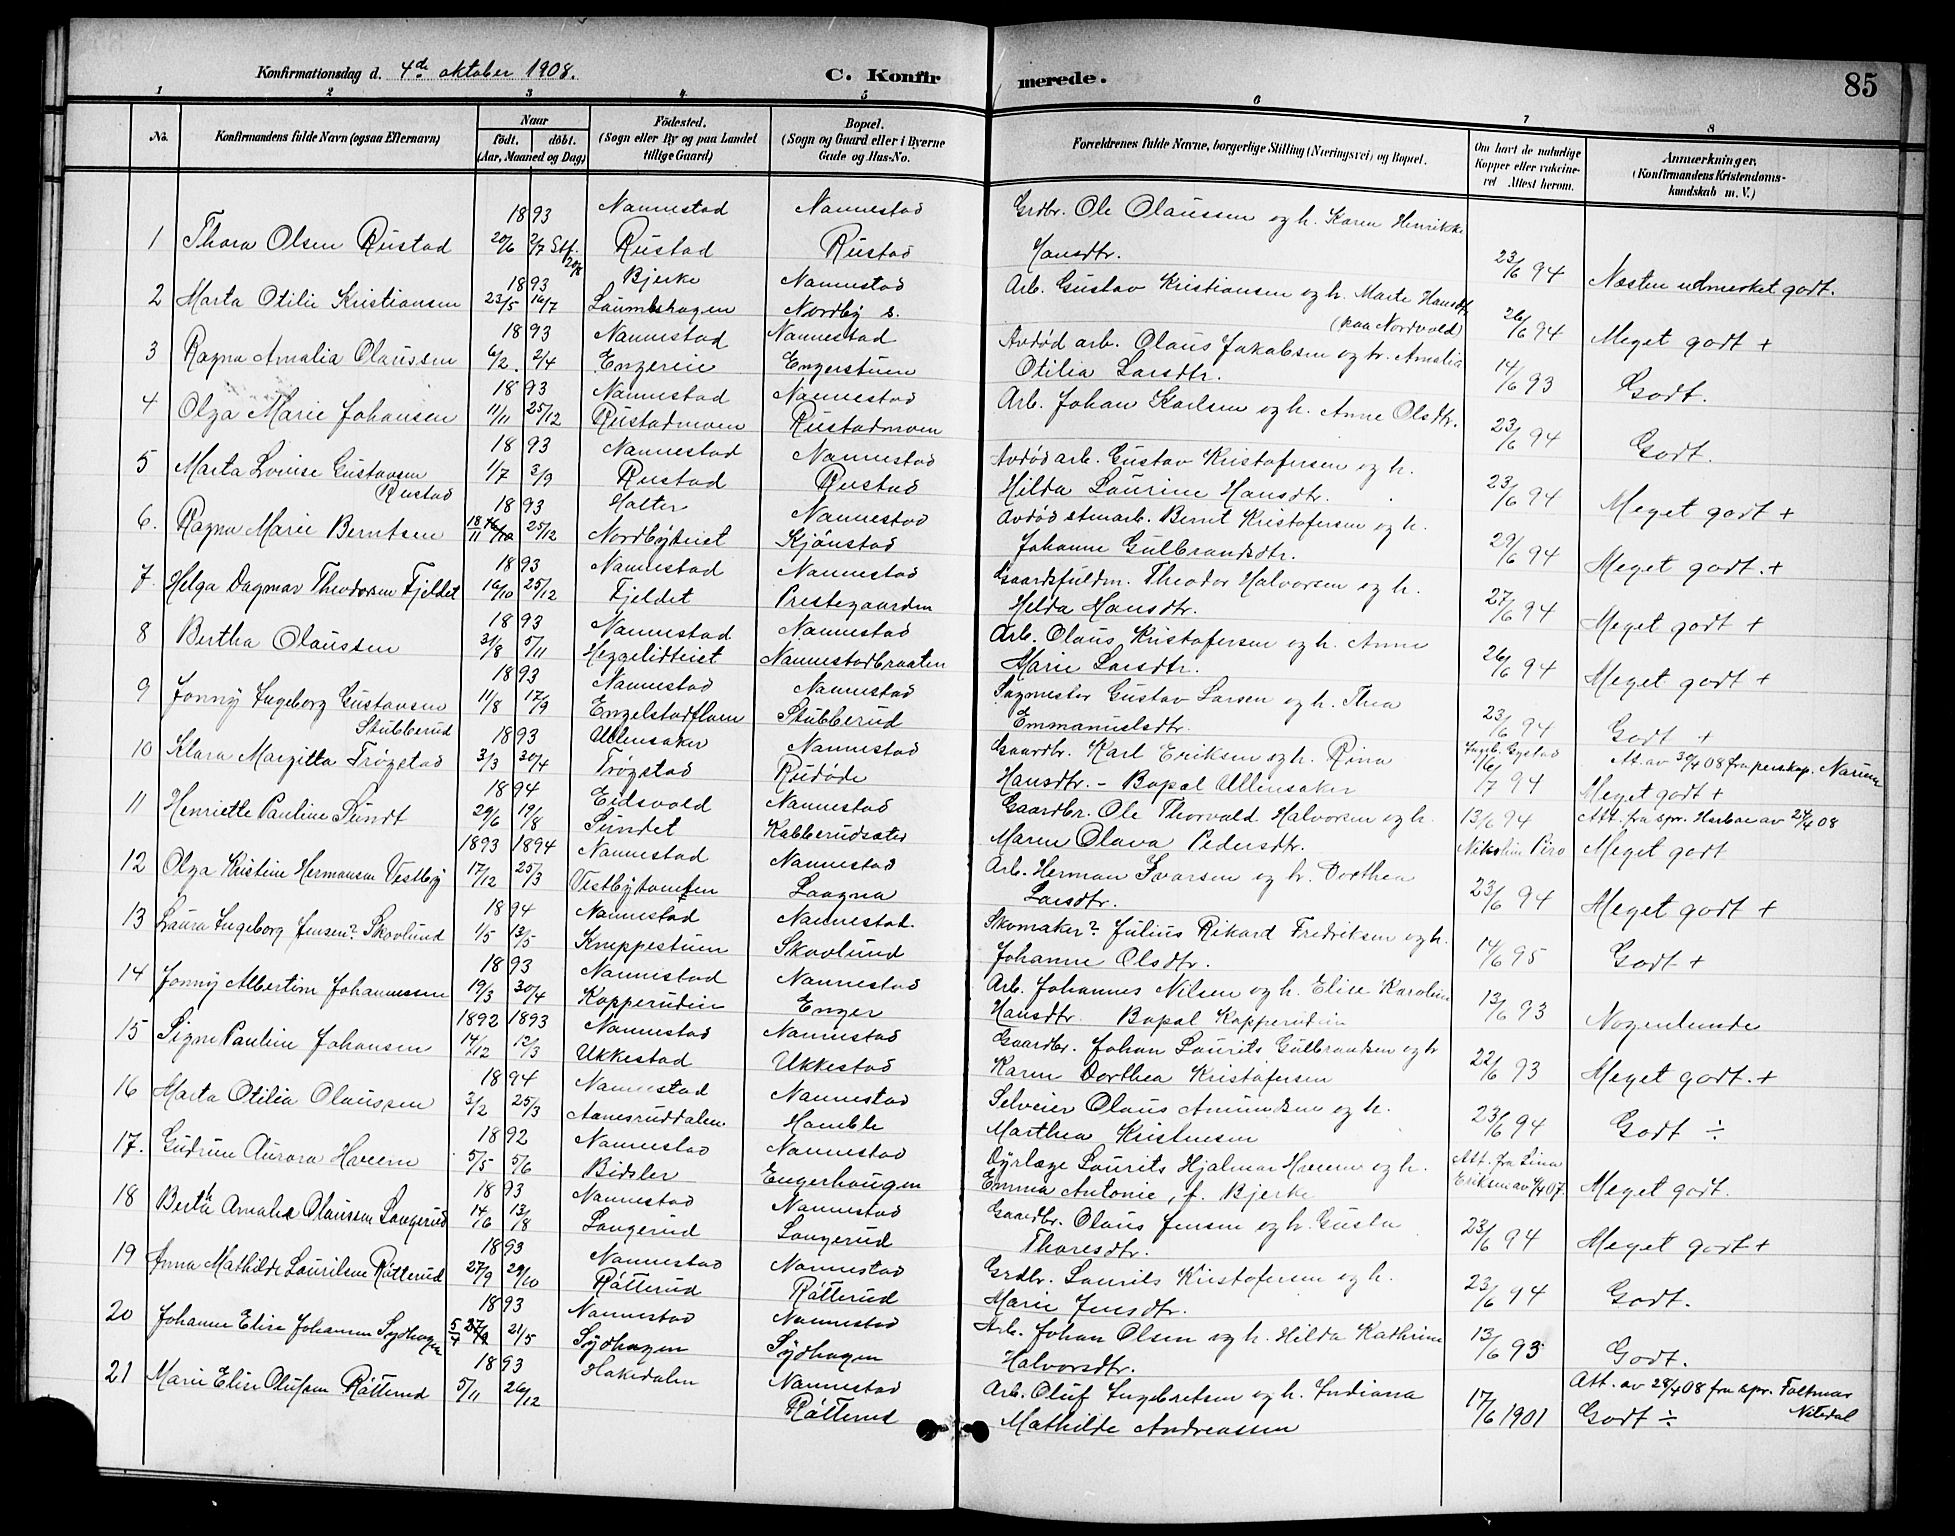 Konfirmationsdag d. 4de oktober 1908. C. Konfirmerede. 85
1 2 3 4 5 6 7 8
No. Konfirmandens fulde Navn (ogsaa Efternavn) Naar født. døbt. (Aar, Maaned og Dag) Fødested. (Sogn eller By og paa Landet tillige Gaard) Bopæl. (Sogn og Gaard eller i Byerne Gade og Hus-No.) Forældrenes fulde Navne, borgerlige Stilling (Næringsvei) og Bopæl. Om havt de naturlige Kopper eller vakcineret Attest herom. Anmærkninger, (Konfirmandens Kristendomskundskab m. V.)
1893 Nannestad Nannestad Grdbr. Ole Olaussen og h. Karen Henrikke
1 Thora Olsen Rustad 20/6 2/7 Stf. 20/8 Rustad Rustad Hansdtr. 23/6 94 Næsten udmerket godt.
1893 Bjerke Nannestad Arb. Gustav Kristiansen og h. Marte Hansdtr.
2 Marta Otilie Kristiansen 23/5 16/7 Laumbshagen Nordby s. (paa Nordvold) 26/6 94 Meget godt +
1893 Nannestad Nannestad Avdød arb. Olaus Jakobsen og h. Amalia
3 Ragna Amalia Olaussen 6/2. 2/4 Engereie Engerstuen Otilia Larsdtr. 14/6 93 Godt.
1893 Nannestad Nannestad Arb. Johan Karlsen og h. Anne Olsdtr.
4 Olga Marie Johansen 11/11 25/12 Rustadmoen Rustadmoen 23/6 94 Godt.
1893 Nannestad Nannestad Avdød arb. Gustav Kristofersen og h.
5 Marta Louise Gustavsen Rustad 1/7 3/9 Rustad Rustad Hilda Laurine Hansdtr. 23/6 94 Meget godt +
1893 Holter Nannestad Avdød stenarb. Bernt Kristofersen og h.
6. Ragna Marie Berntsen 18/11 25/12 Nordbyteiet Kjønstad Johanne Gulbrandsdtr. 29/6 94 Meget godt. +
1893 Nannestad Nannestad Gaardsfuldm. Theodor Halvorsen og h.
7. Helga Dagmar Theodorsen Fjeldet 16/10 25/12 Fjeldet Prestegaarden Helda Hansdtr. 27/6 94 Meget godt +
1893 Nannestad Nannestad Arb. Olaus Kristofersen og h. Anne
8 Bertha Olaussen 31/8 5/11 Heggelidteiet Nannestadbraaten Marie Larsdtr. 26/6 94 Meget godt +
1893 Nannestad Nannestad Sagmester Gustav Larsen og h. Thea
9 Jonny Ingeborg Gustavsen Stubberud 11/8 17/9 Engelstadfloen Stubberud Emmanuelsdtr. 23/6 94 Godt +
1893 Ullensaker Nannestad Gaardbr. Karl Eriksen og h. Rina Ingeb. Gystad At. av 30/4 08 fra perskap.
10 Klara Margitta Trøgstad 3/3 30/4 Trøgstad Rudøde Hansdtr. - Bopæl Ullensaker 16/7 94 Meget godt +
1894 Eidsvold Nannestad Gaardbr. Ole Thorvald Halvorsen og h. 13/6 94 Att. fra spr. Harboe av 24/4 08
11 Henriette Pauline Sundt 29/6 19/8 Sundet Kabberudsæter Maren Olava Pedersdtr. Nikolim Piro Meget godt
1893 1894 Nannestad Nannestad Arb. Herman Ivarsen og h. Dorthea
12 Olga Kristine Hermansen Vestby 17/12 25/3 Vestbytomten Laagna Larsdtr. 23/6 94 Meget godt +
1894 Nannestad Nannestad. Skomaker? Julius Rikard Fredriksen og h.
13 Laura Ingeborg Jensen? Skovlund 1/5 13/5 Kneppestuen Skovlund Johanne Olsdtr. 14/6 95 Godt +
1893 Nannestad Nannestad Arb. Johannes Nilsen og h. Elise Karoline
14 Jonny Albertine Johannessen 19/3 30/4 Kopperudeie Enger Hansdtr. Bopæl Kopperudeie 13/6 93 Nogenlunde
1892 1893 Nannestad Nannestad Gaardbr. Johan Laurits Gulbrandsen og h
15 Signe Pauline Johansen 14/12 12/3 Ukkestad Ukkestad Karen Dorthea Kristofersen 22/6 93 Meget godt. +
1894 Nannestad Nannestad Selveier Olaus Amundsen og h.
16 Marta Otilia Olaussen 3/2 25/3 Aamesruddalen Hamble Marthea Kristensen 23/6 94 Godt ÷
1892 Nannestad Nannestad Dyrlæge Laurits Hjalmar Hareem og h. Att. fra Lina
17. Gudrun Aurora Hareem 5/5 5/6 Bidsler Engerhaugen Emma Antonie, f. Bjerke Eriksen av 4/4 07. Meget godt.
1893 Nannestad Nannestad Gaardbr. Olaus Jensen og h. Gusta
18 Bertha Amalia Olaussen Langerud 14/6 13/8 Langerud Langerud Thoresdtr. 23/6 94 Meget godt +
1893 Nannestad Nannestad Grdbr. Laurits Kristofersen og h.
19 Anna Mathilde Lauritsen Råtterud 27/9 29/10 Råtterud Råtterud Marie Jensdtr. 23/6 94 Godt.
1893 Nannestad Nannestad Arb. Johan Olsen og h. Hilda Kathrine
20 Johanne Elise Johansen Sydhagen 5/4 21/5 Sydhagen Sydhagen Halvorsdtr. 13/6 93 Godt.
1893 Hakedalen Nannestad Arb. Oluf Ingebretsen og h. Indiana Att. av 28/4 08 fra spr. Foltmar
21 Marie Elise Olufsen Råtterud 5/11 26/12 Råtterud Mathilde Andreassen 17/6 1901 Godt ÷ Nitedal